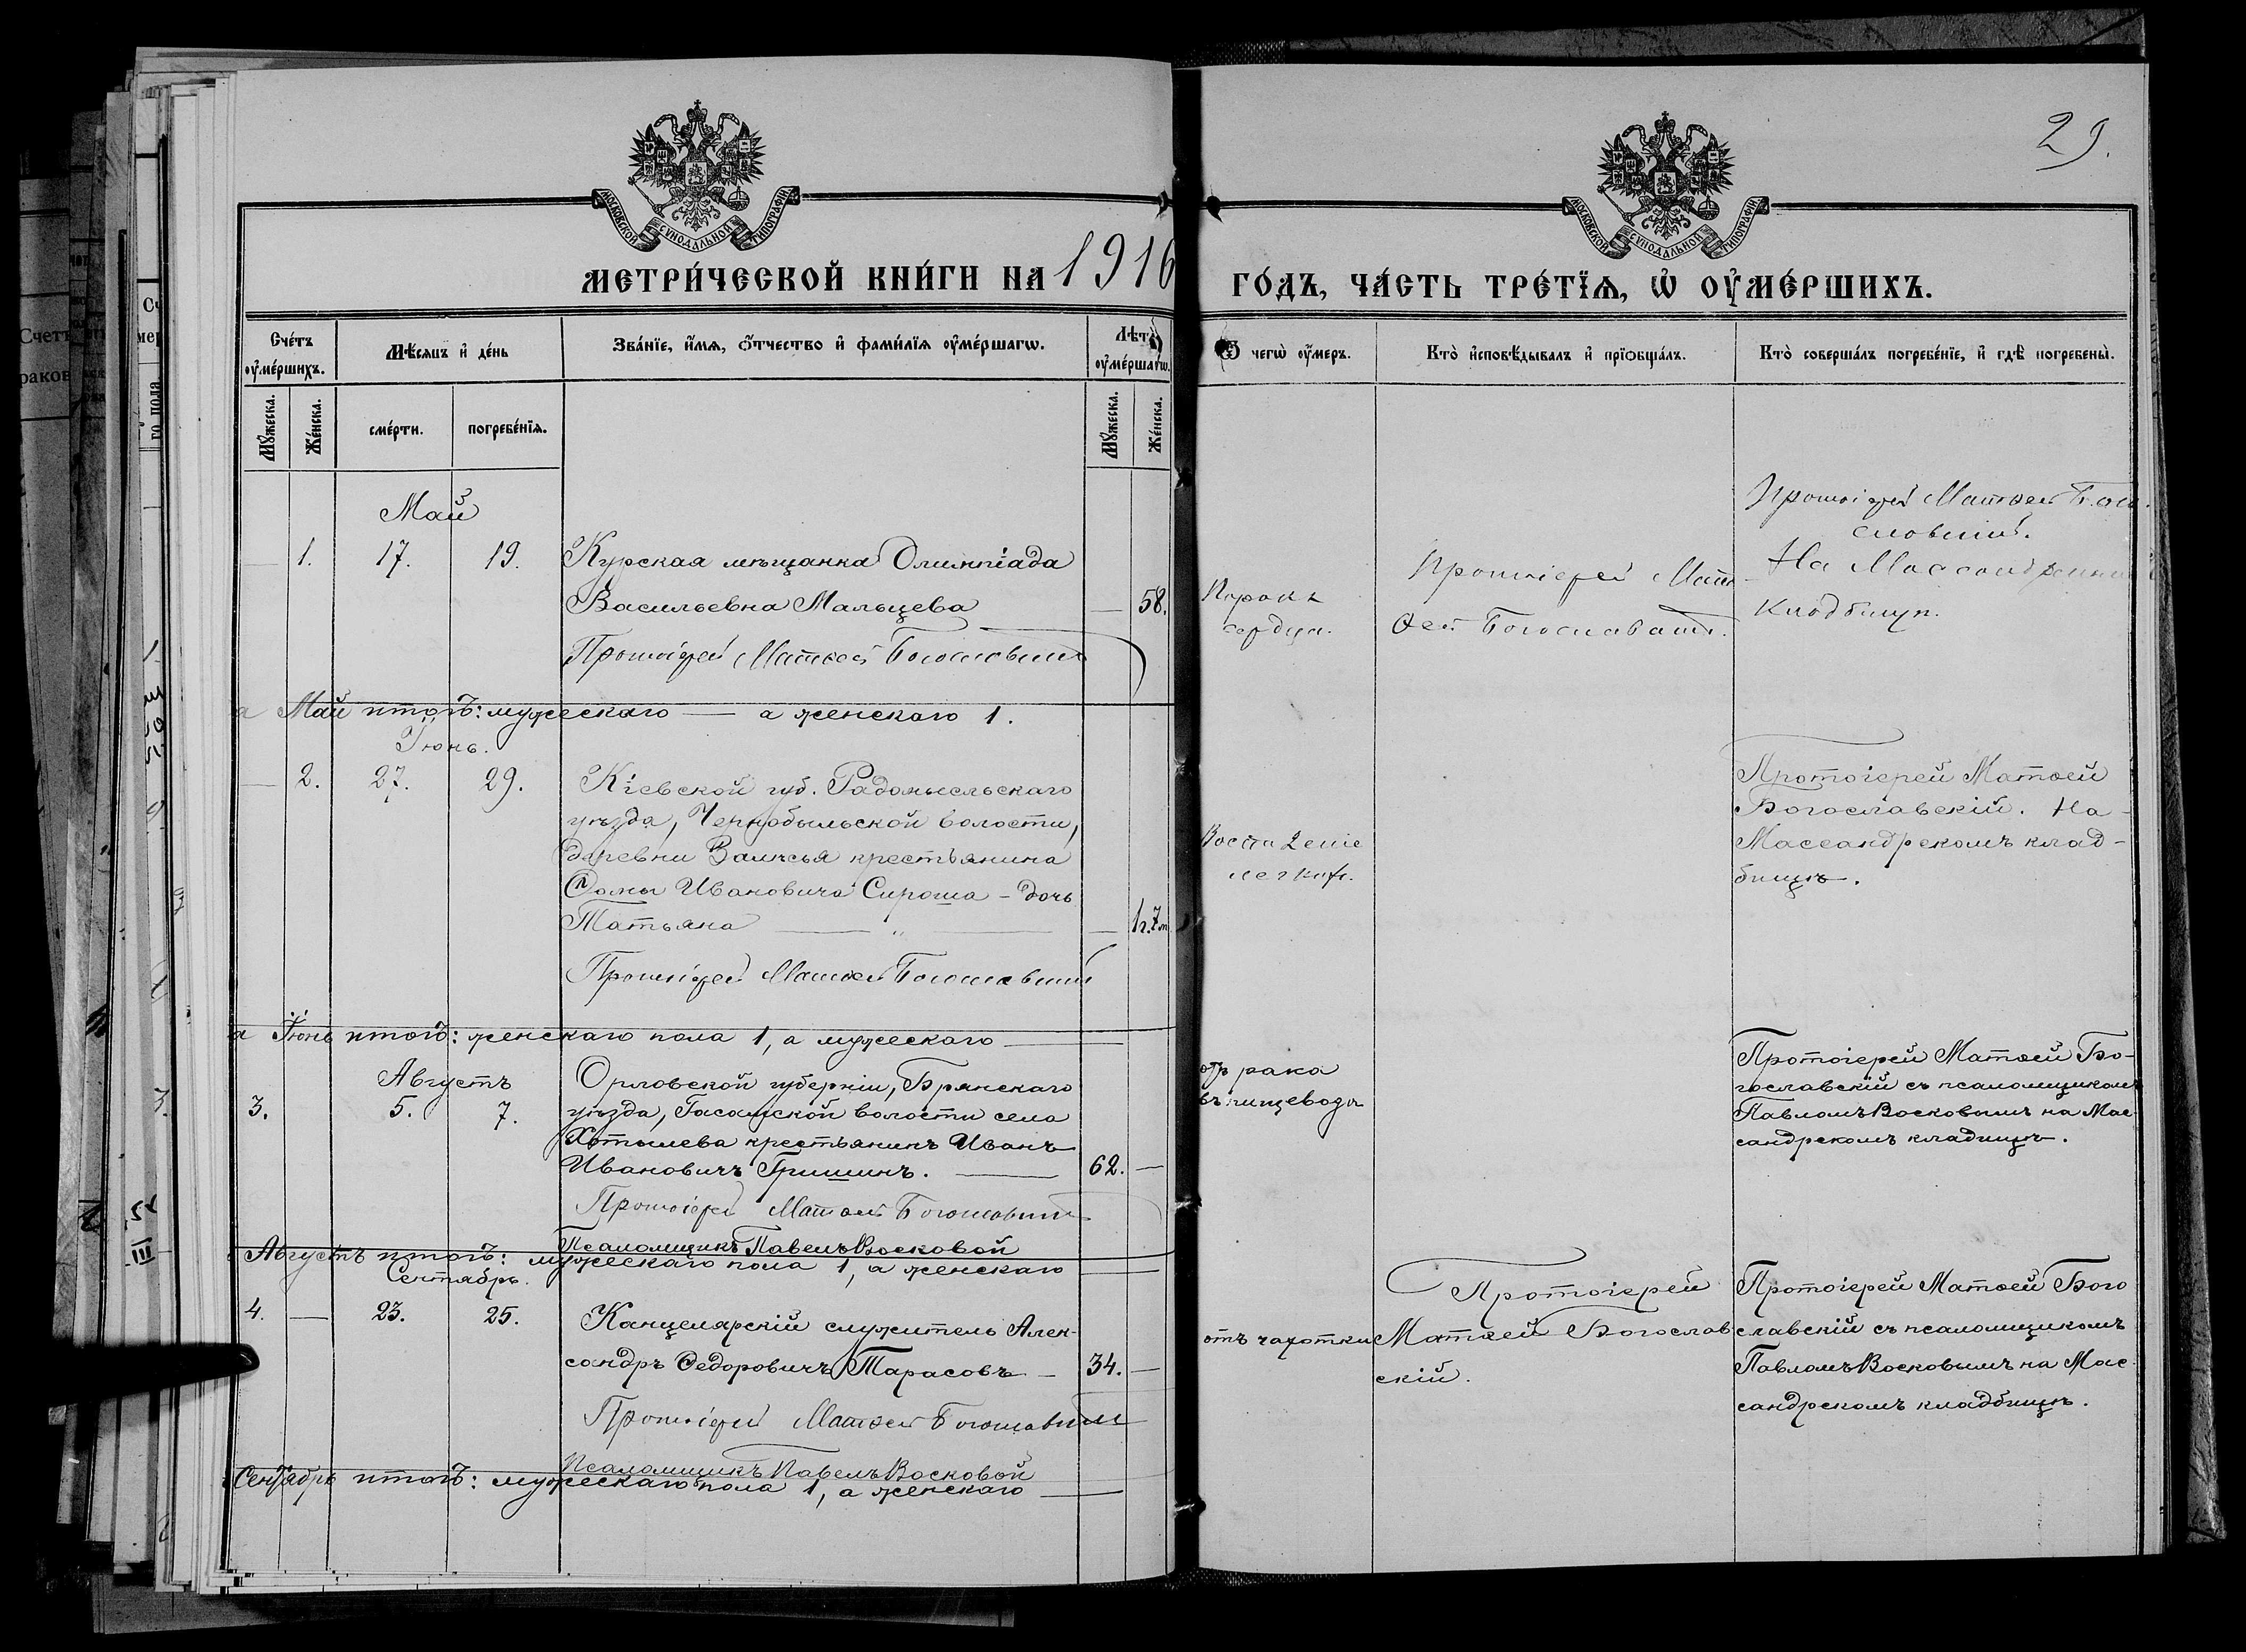 29.
МОСКОВСКОЙ СѴНОДАЛЬНОЙ ТИПОГРАФІИ
МОСКОВСКОЙ СѴНОДАЛЬНОЙ ТИПОГРАФІИ
МЕТРИ́ЧЕСКОЙ КНИ́ГИ НА 1916 ГО́ДЪ, ЧА́СТЬ ТРЕ́ТЇѦ, Ѡ҆ ОУ҆МЕ́РШИХЪ.
Сче́тъ оу҆ме́ршихъ.
Мѣ́сѧцъ и҆ де́нь
Зва́нїе, и҆́мѧ, ѻ҆́тчество и҆ фами́лїѧ оу҆ме́ршагѡ.
Лѣ́та оу҆ме́ршагѡ.
Ѿ чегѡ̀ оу҆́меръ.
Кто̀ и҆сповѣ́дывалъ и҆ прїѻбща́лъ.
Кто̀ соверша́лъ погребе́нїе, и҆ гдѣ̀ погребены̀.
Мꙋ́жеска.
Же́нска.
сме́рти.
погребе́нїѧ.
Мꙋ́жеска.
Же́нска.
Май
— 1. 17. 19.
Курская мѣщанка Олимпіада
Васильевна Мальцева — 58.
Протоіерей Матѳей Богословскій
Порокъ
сердца.
Протоіерей Мат-
ѳей Богославскій.
Протоіерей Матѳей Бого-
словскій.
На Массандрскомъ
кладбищѣ.
а Май итогъ: мужескаго — а женскаго 1.
Іюнь.
— 2. 27. 29.
Кіевской губ. Радомысльскаго
уѣзда, Чернобыльской волости,
деревни Залѣсья крестьянина
Ѳомы Ивановича Сироша - дочь
Татьяна — „ — — 1г.7м
Протоіерей Матѳей Богословскій
Воспаленіе
легкихъ.
Протоіерей Матѳей
Богославскій. На
Массандрскомъ клад-
бищѣ.
а Іюнь итогъ: женскаго пола 1, а мужескаго —
Августъ
3. 5. 7.
Орловской губерніи, Брянскаго
уѣзда, волости села
Хотылева крестьянинъ Иванъ
Ивановичъ Гришинъ. — 62. —
Протоіерей Матѳей Богословскій
Псаломщикъ Павелъ Восковой
отъ рака
въ пищеводѣ
Протоіерей Матѳей Бо-
гославскій съ псаломщикомъ
Павломъ Восковымъ на Мас-
сандрскомъ кладищѣ.
Августъ итогъ: мужескаго пола 1, а женскаго —
Сентябрь.
4. — 23. 25.
Канцелярскій служитель Алек-
сандръ Ѳедоровичъ Тарасовъ — 34. —
Протоіерей Матѳей Богословскій
Псаломщикъ Павелъ Восковой
отъ чахотки
Протоіерей
Матѳей Богослав
скій.
Протоіерей Матѳей Бого
славскій съ псаломщикомъ
Павломъ Восковымъ на Мас-
сандрскомъ кладбищѣ.
Сентябрь итогъ: мужескаго пола 1, а женскаго —